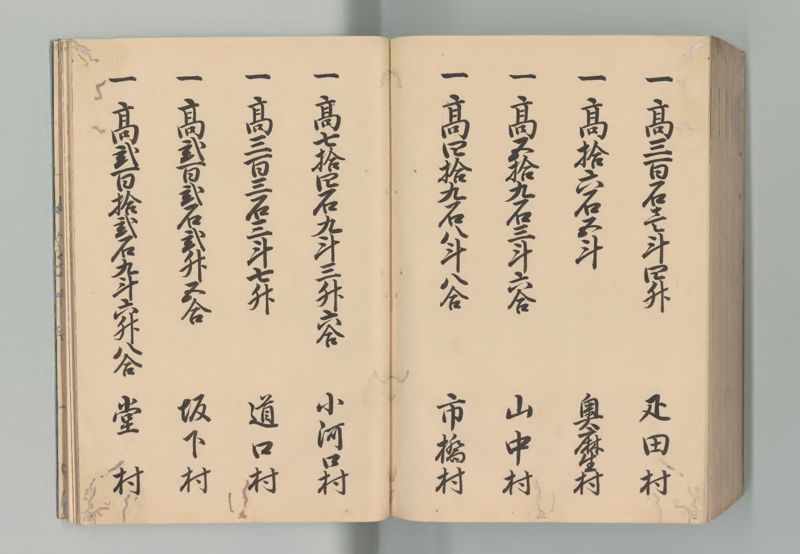 一 高三百石壱斗四升 疋田村
一 高拾六石五斗 奥麻生村
一 高五拾九石三斗六合 山中村
一 高四拾九石八斗八合 市橋村
一 高七拾四石九斗三升六合 小河口村
一 高三百三石三斗七升 道口村
一 高弐百弐石弐升五合 坂下村
一 高弐百拾弐石九斗六升八合 堂村